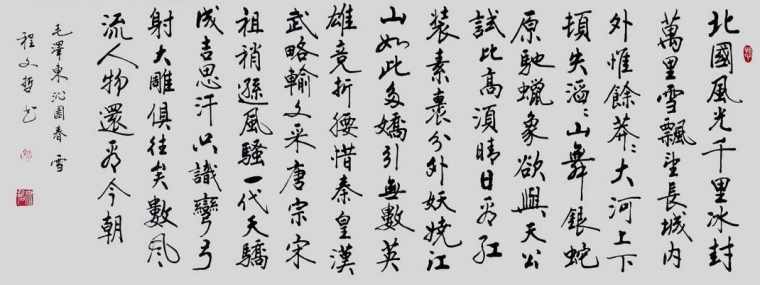 北國風光千里冰封
萬里雪飄望長城內
外惟餘莽〻大河上下
頓失滔〻山舞銀蛇
原馳蠟象欲與天公
試比高須晴日看紅
裝素裹分外妖嬈江
山如此多嬌引無數英
雄竞折腰惜秦皇漢
武略輸文采唐宗宋
祖稍遜風騷一代天驕
成吉思汗只識彎弓
射大雕俱往矣數風
流人物還看今朝
毛澤東沁園春 雪
程文哲书